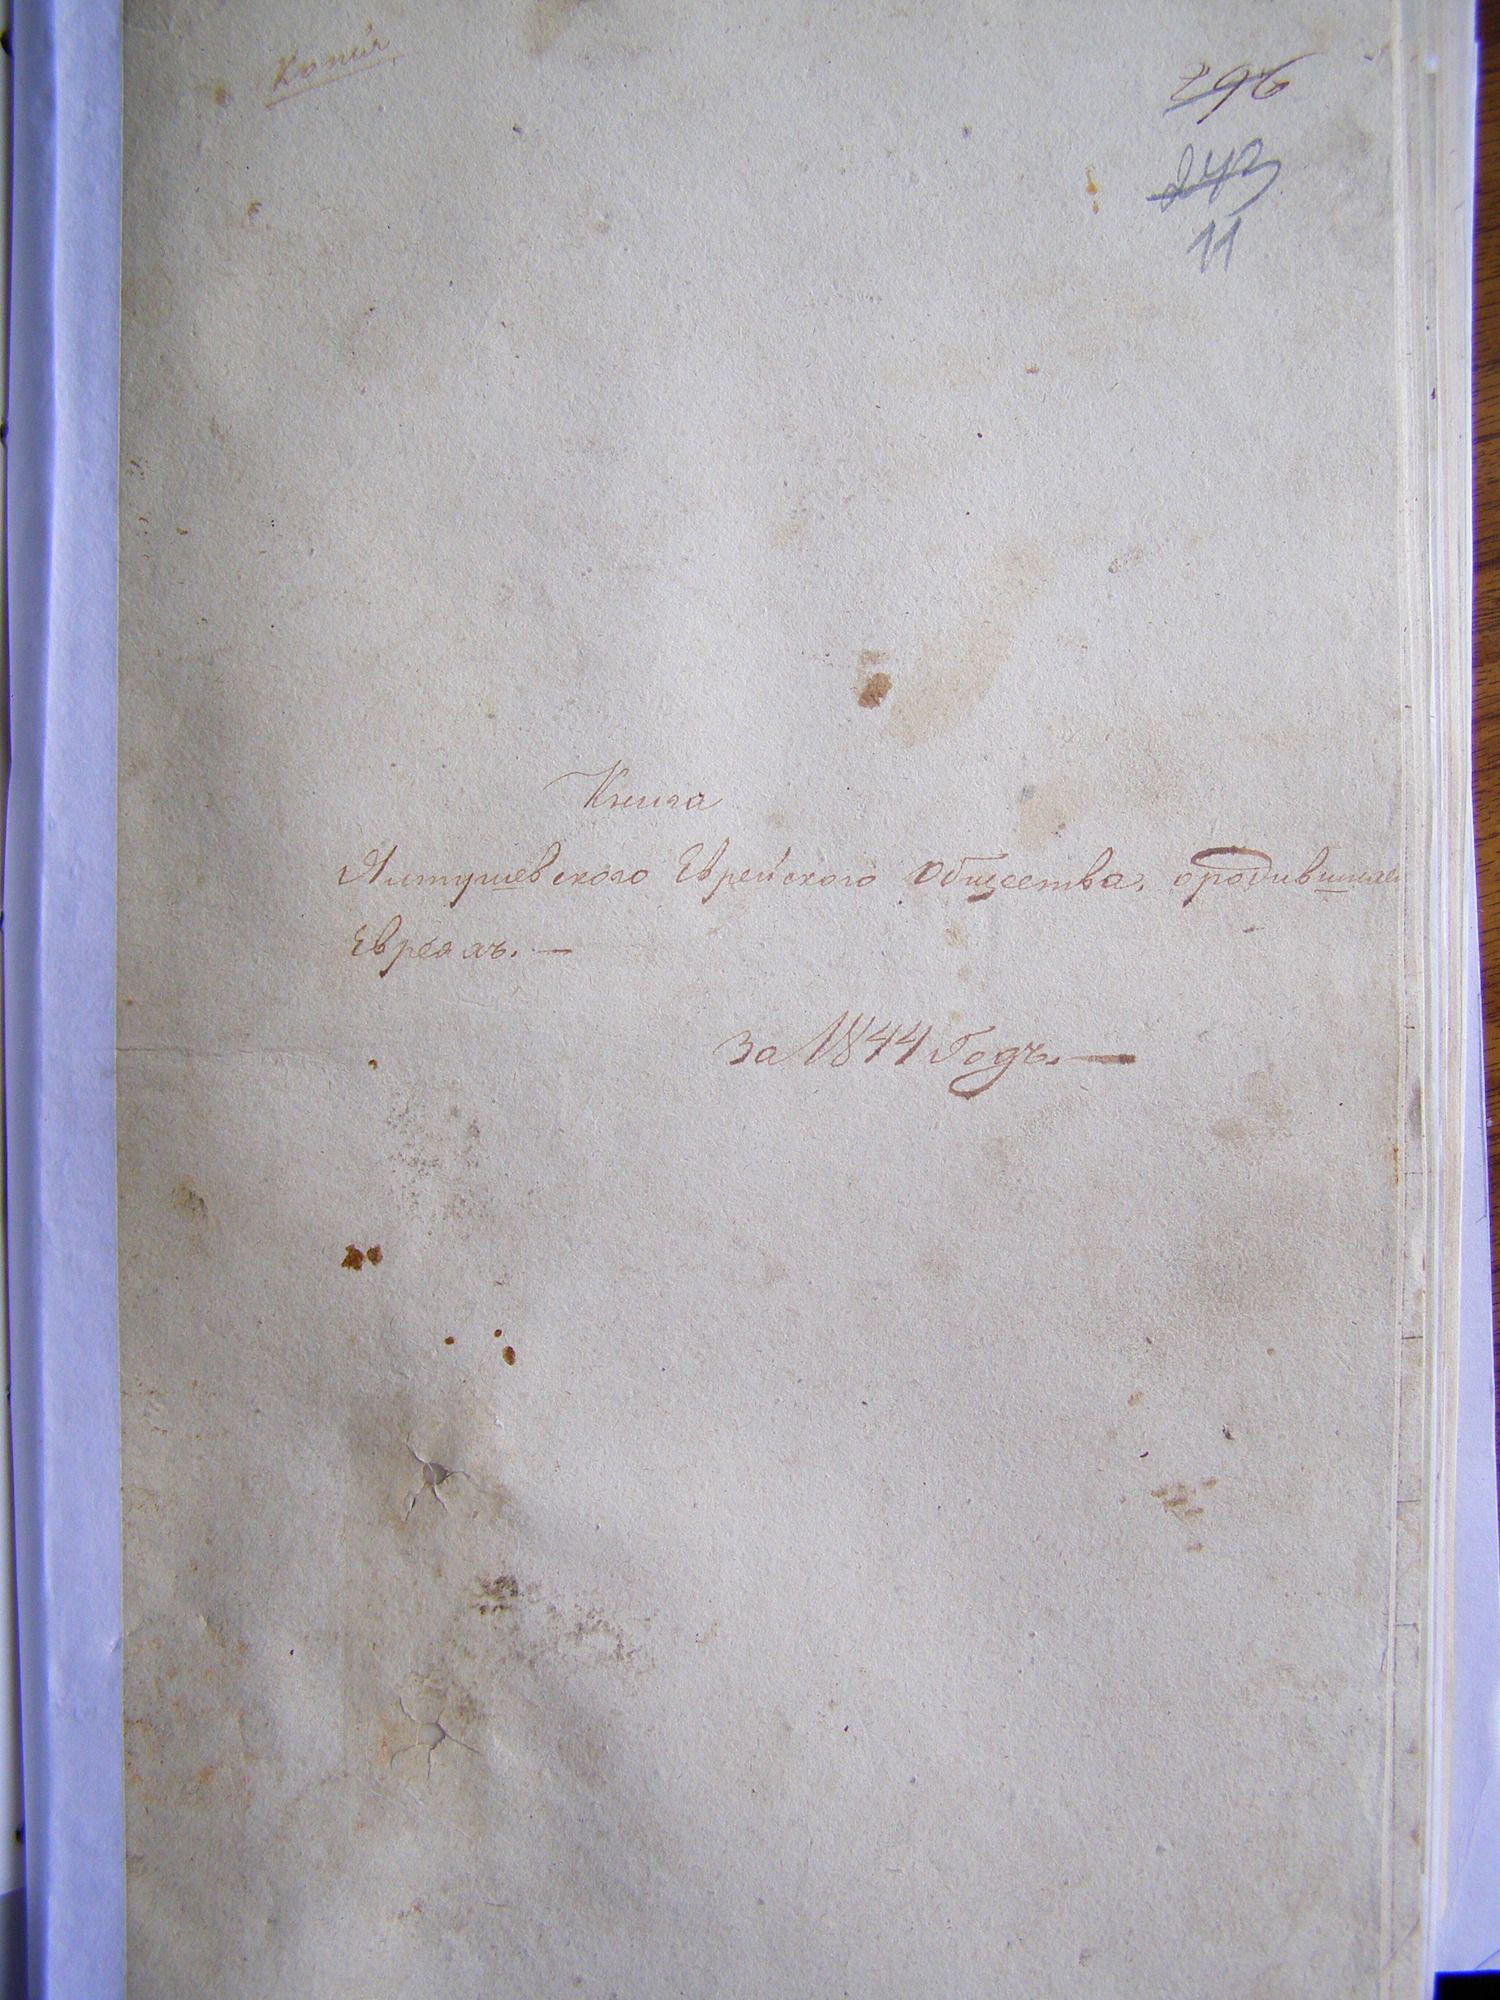 Копія
296
243
11
Книга
Ялтушевского Еврейского Общества, ородившихся
Евреяхъ. —
за 1844 Годъ. —